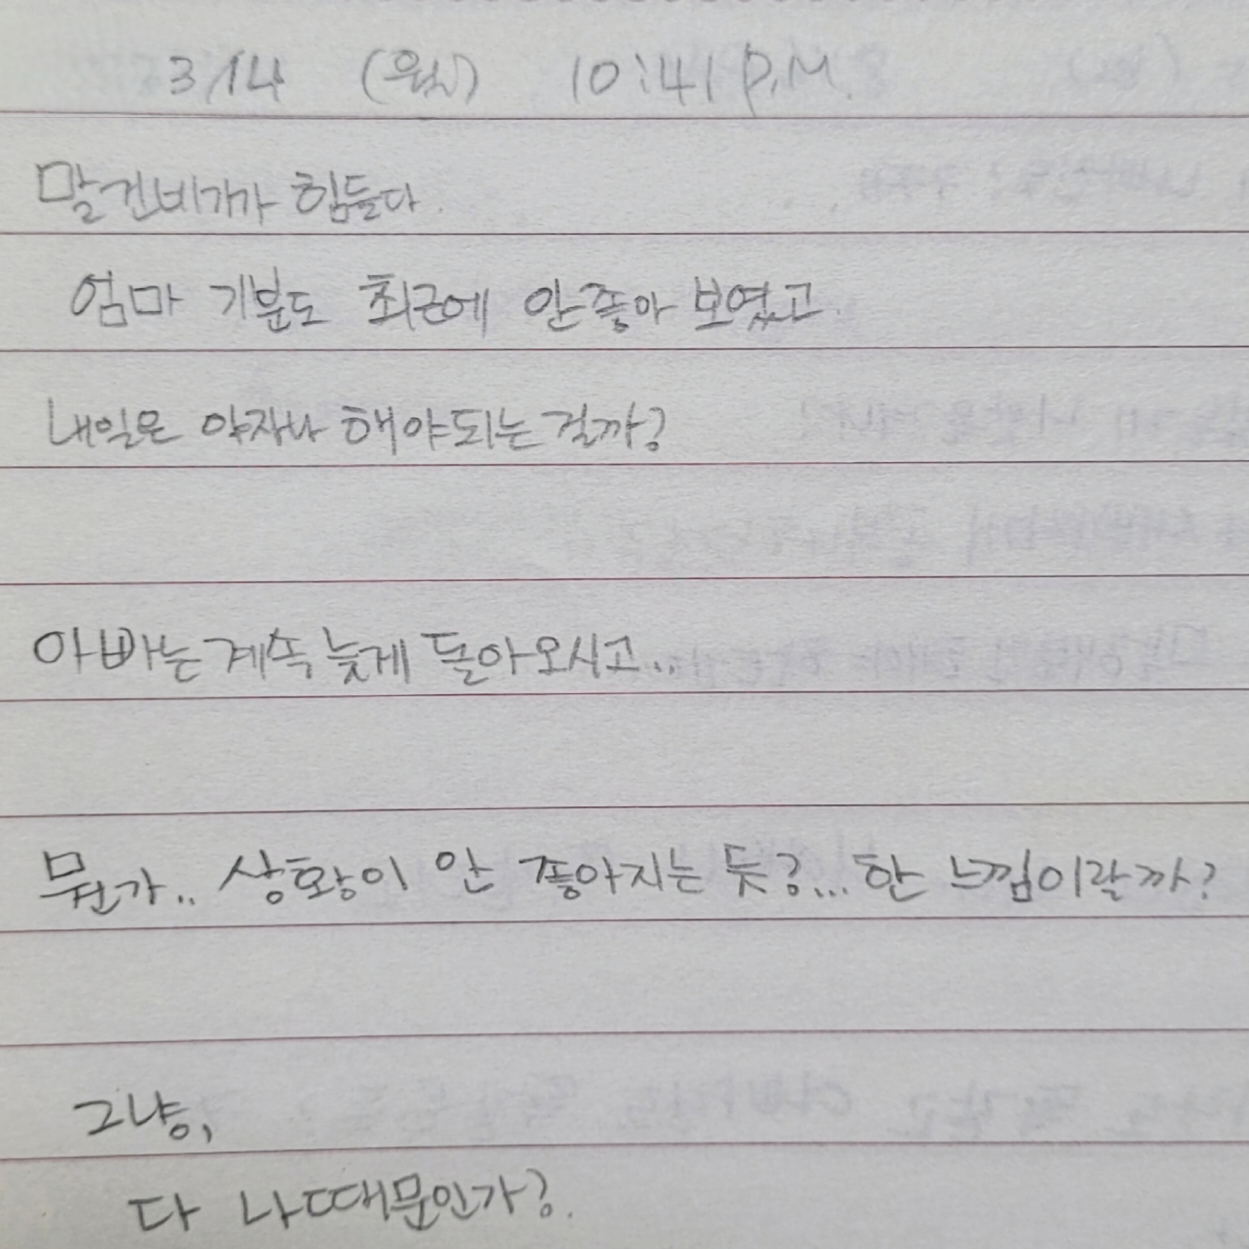 3/14 (월) 10:41 P.M.
말건네기가 힘들다.
엄마 기분도 최근에 안좋아 보였고.
내일은 야자나 해야되는 걸까?
아빠는 계속 늦게 돌아오시고...
뭔가.. 상황이 안 좋아지는 듯?... 한 느낌이랄까?
그냥,
다 나때문인가?.